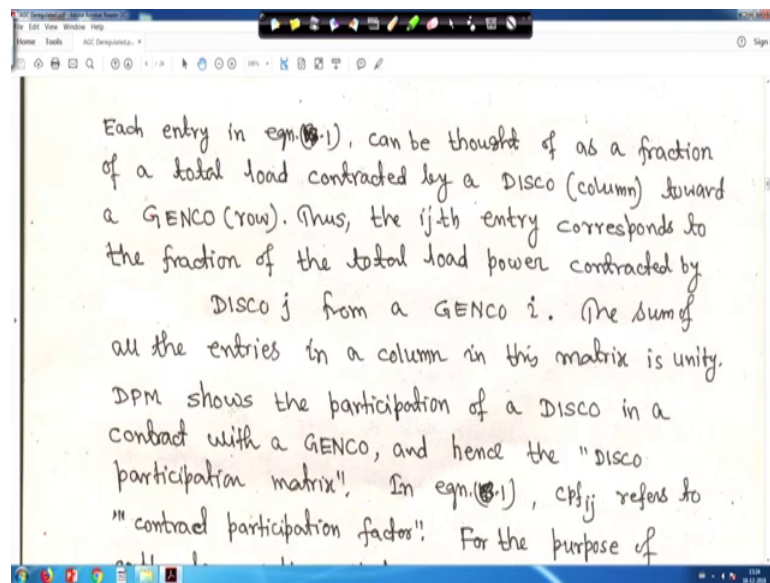 AGC Deregulated.pdf - Adobe Acrobat Reader DC
File Edit View Window Help
Home Tools AGC Deregulated.p... ×
Sign
Each entry in eqn.( .1), can be thought of as a fraction
of a total load contracted by a DISCO (column) toward
a GENCO (row). Thus, the ijth entry corresponds to
the fraction of the total load power contracted by
DISCO j from a GENCO i. The sum of
all the entries in a column in this matrix is unity.
DPM shows the participation of a DISCO in a
contract with a GENCO, and hence the "DISCO
participation matrix". In eqn.( .1), cpf ij refers to
"" contract participation factor". For the purpose of